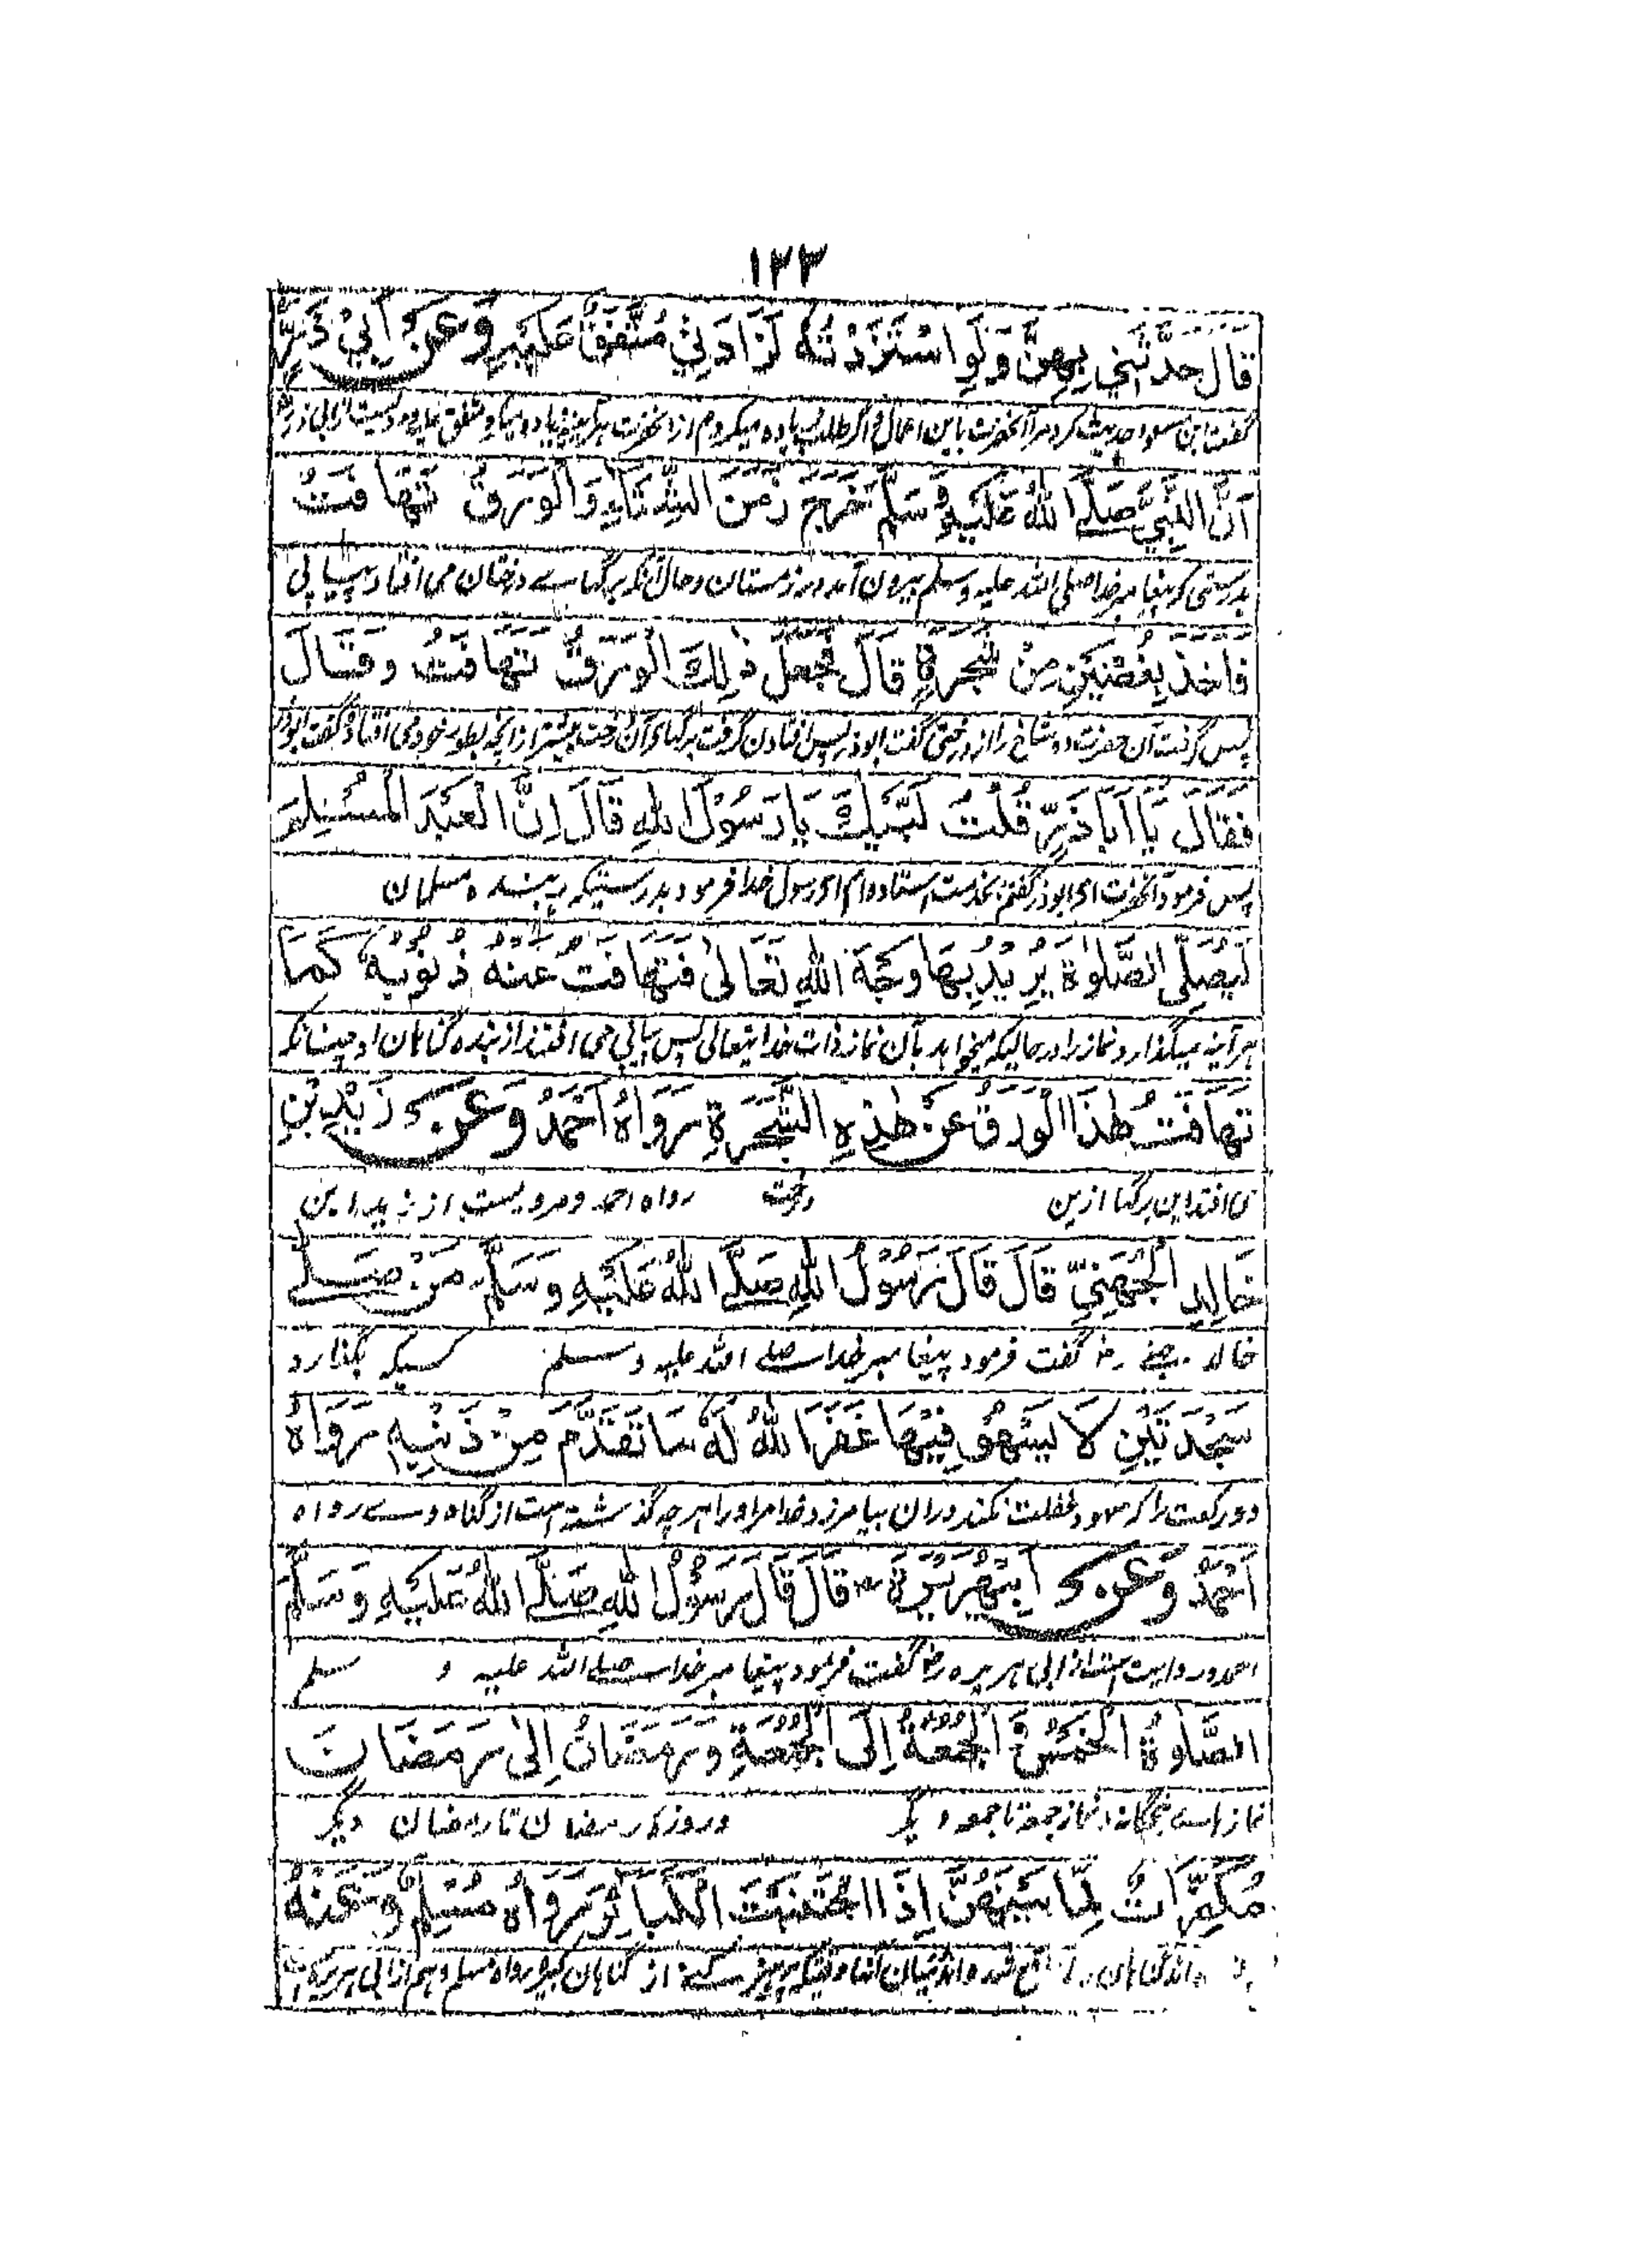 ١٢٣
قَالَ حَدَّثَنِي بِهِنَّ وَلَوِ اسْتَزَدْتُهُ لَزَادَنِيْ مُتَّفَقٌ عَلَيْهِ وَعَنْ اَبِيْ ذَرٍّ
گفت ابن مسعود حدیث کرد مرا آنحضرت باین اعمال و اگر طلب زیاده میکردم از آنحضرت هر آینه زیاده
اَنَّ النَّبِيَّ صَلَّے اللهُ عَلَيْهِ وَسَلَّمَ خَرَجَ زَمَنَ الشِّتَاءِ وَالْوَرَقُ تَتَهَافَتُ
بدرستی که پیغامبر خدا صلی الله علیه وسلم بیرون آمد در زمستان و حال آنکه برگهاے درختان می افتاد پیاپی
فَاَخَذَ بِغُصْنَيْنِ مِنْ شَجَرَةٍ قَالَ فَجَعَلَ ذٰلِكَ الْوَرَقُ تَتَهَافَتُ وَقَالَ
پس گرفت آن حضرت دو شاخ را از درختی گفت ابوذر پس افتادن گرفت برگهای آن درخت بیشتر از آنچه بطور خود می افتاد و گفت ابوذر
فَقَالَ يَا اَبَا ذَرٍّ قُلْتُ لَبَّيْكَ يَا رَسُوْلَ اللهِ قَالَ اِنَّ الْعَبْدَ الْمُسْلِمَ
پس فرمود آنحضرت ای ابوذر گفتم بخدمت استاده ام ای رسول خدا فرمود بدرستیکه بنده مسلمان
لَيُصَلِّي الصَّلٰوةَ يُرِيْدُ بِهَا وَجْهَ اللهِ تَعَالٰى فَتَهَافَتُ عَنْهُ ذُنُوْبُهُ كَمَا
هر آینه میگذارد نماز را در حالیکه میخواهد بآن نماز ذات خدایتعالی پس پیاپی می افتند از بنده گناهان او چنانکه
تَهَافَتُ هٰذَا الْوَرَقُ عَنْ هٰذِهِ الشَّجَرَةِ رَوَاهُ اَحْمَدُ وَعَنْ زَيْدِ بْنِ
می افتد این برگها ازین درخت رواه احمد و مرویست از زید ابن
خَالِدِ الْجُهَنِيِّ قَالَ قَالَ رَسُوْلُ اللهِ صَلَّے اللهُ عَلَيْهِ وَسَلَّمَ مَنْ صَلّے
خالد جهنے رض گفت فرمود پیغامبر خدا صلے الله علیه وسلم کسیکه بگذارد
سَجْدَتَيْنِ لَا يَسْهُوْ فِيْهَا غَفَرَ اللهُ لَهُ مَا تَقَدَّمَ مِنْ ذَنْبِهِ رَوَاهُ
دو رکعت را که سهو و غفلت نکند دران بیامرزد خدا مر او را هر چه گذشته است از گناه وے رواه
اَحْمَدُ وَعَنْ اَبِيْهُرَيْرَةَ رض قَالَ قَالَ رَسُوْلُ اللهِ صَلَّے اللهُ عَلَيْهِ وَسَلَّمَ
احمد و روایت است از ابی هریره رض گفت فرمود پیغامبر خدا صلے الله علیه و سلم
الصَّلٰوةُ الْخَمْسُ وَ الْجُمُعَةُ اِلَى الْجُمُعَةِ وَرَمَضَانُ اِلٰى رَمَضَانَ
نماز هاے پنجگانه و نماز جمعه تا جمعه دیگر و روزه رمضان تا رمضان دیگر
مُكَفِّرَاتٌ لِمَا بَيْنَهُنَّ اِذَا اجْتَنَبَتَ الْكَبَائِرَ رَوَاهُ مُسْلِمٌ وَعَنْهُ
گناهان واقع شده اند میان آنها وقتیکه پرهیز کند از گناهان کبیره رواه مسلم و هم از ابی هریره